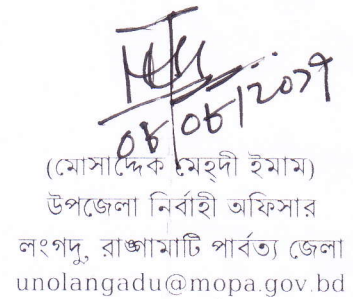 (মোসাদ্দেক মেহ্‌দী ইমাম)
উপজেলা নির্বাহী অফিসার
লংগদু, রাঙ্গামাটি পার্বত্য জেলা
unolangadu@mopa.gov.bd